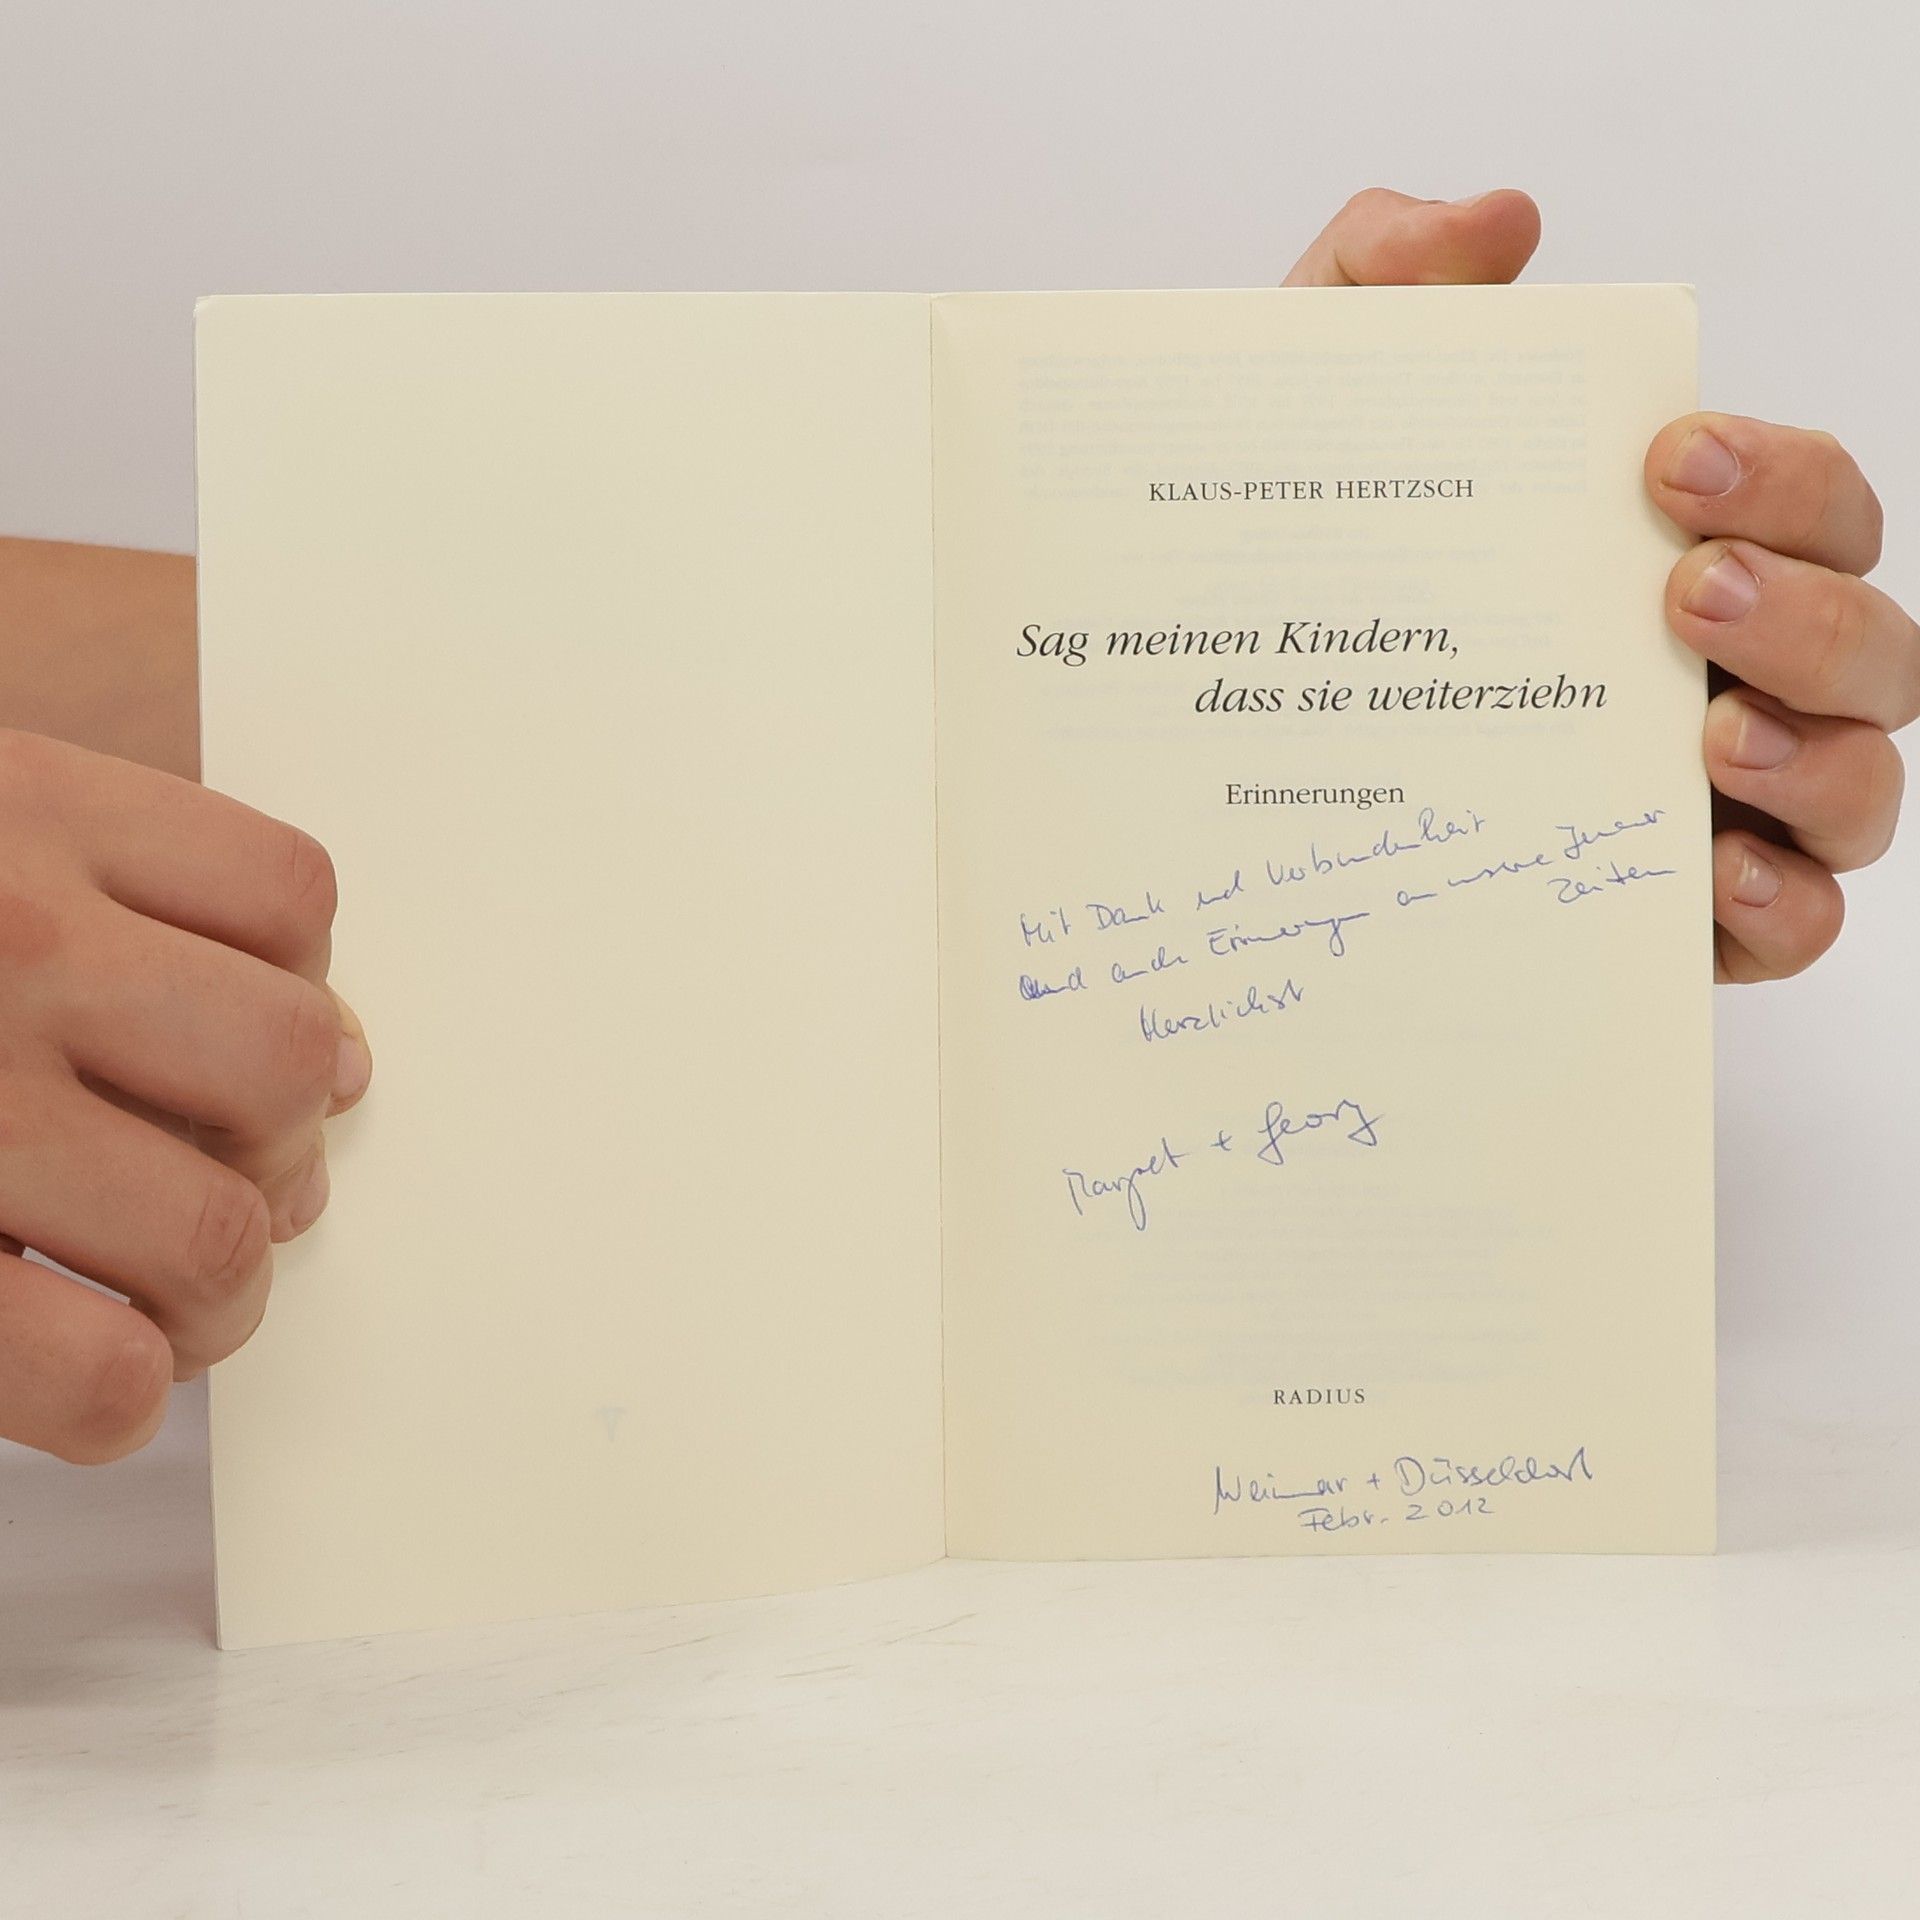 KLAUS-PETER HERTZSCH
Sag meinen Kindern,
dass sie weiterziehn
Erinnerungen
Mit Dank und Verbundenheit
und an die Erinnerungen an unsere Jenaer
Zeiten
Herzlichst
Margret + Georg
RADIUS
Weimar + Düsseldorf
Febr. 2012